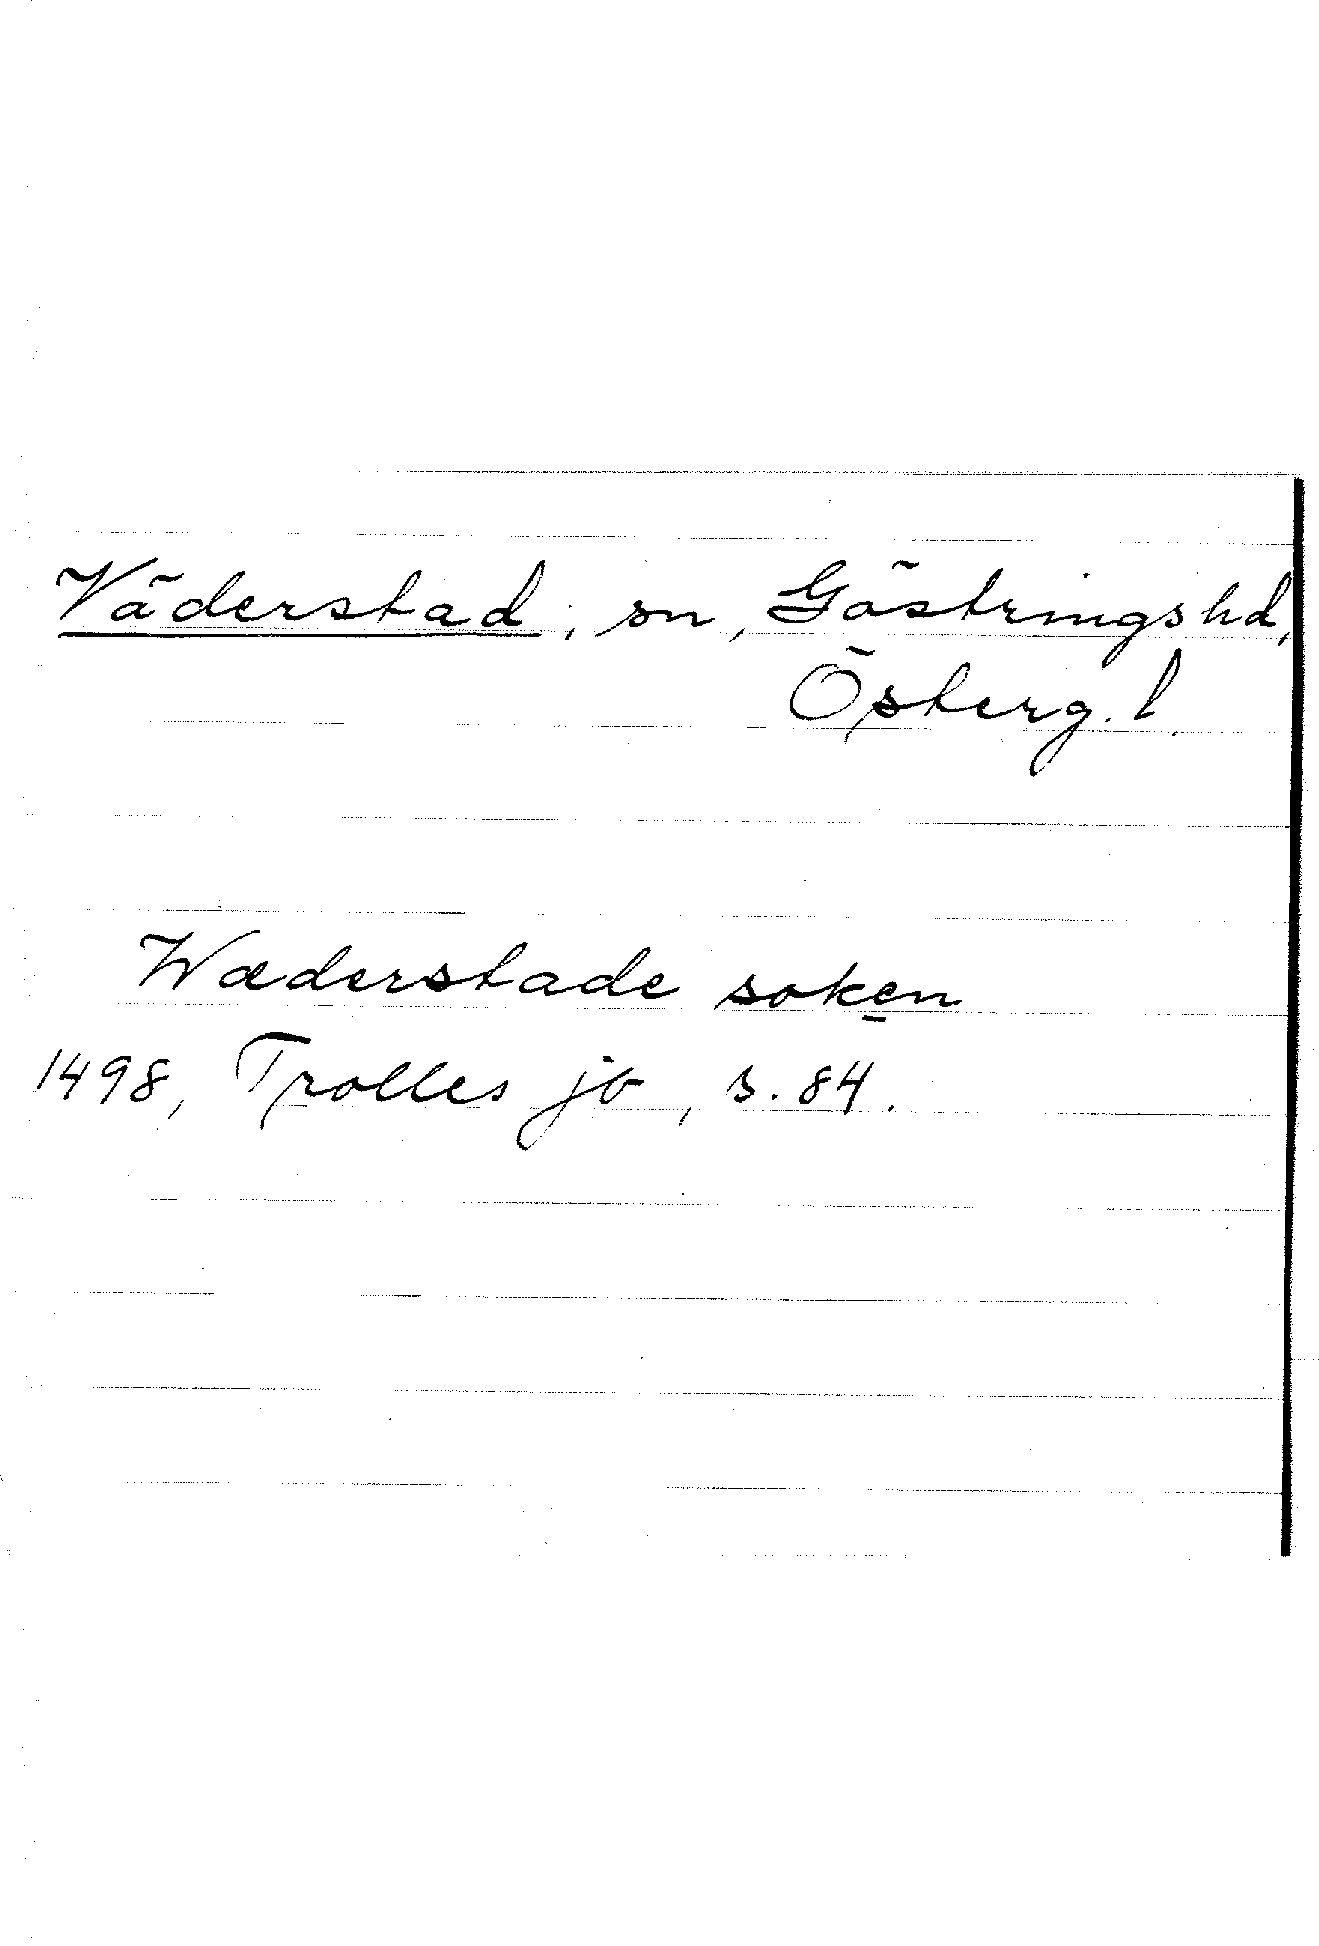 Väderstad, sn, Göstrings hd,
Österg. l.
Wæderstade soken
1498, Trolles jb, s. 84.